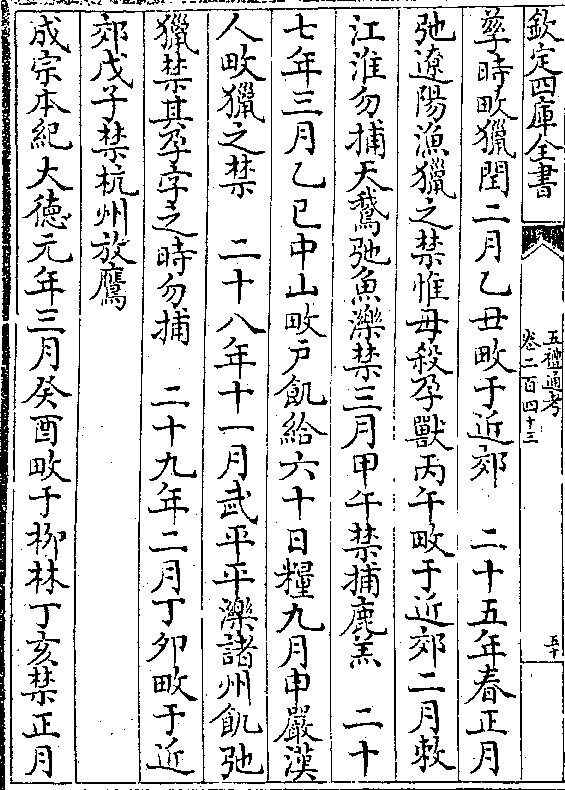 欽定四庫全書
五禮通考
卷二百四十三
五十
孳時畋獵閏二月乙丑畋于近郊　二十五年春正月
弛遼陽漁獵之禁惟毋殺孕獸丙午畋于近郊二月敕
江淮勿捕天鵞弛魚濼禁三月甲午禁捕鹿羔　二十
七年三月乙巳中山畋户飢給六十日糧九月申嚴漢
人畋獵之禁　二十八年十一月武平平灤諸州飢弛
獵禁其孕字之時勿捕　二十九年二月丁卯畋于近
郊戊子禁杭州放鷹
成宗本紀大德元年三月癸酉畋于柳林丁亥禁正月